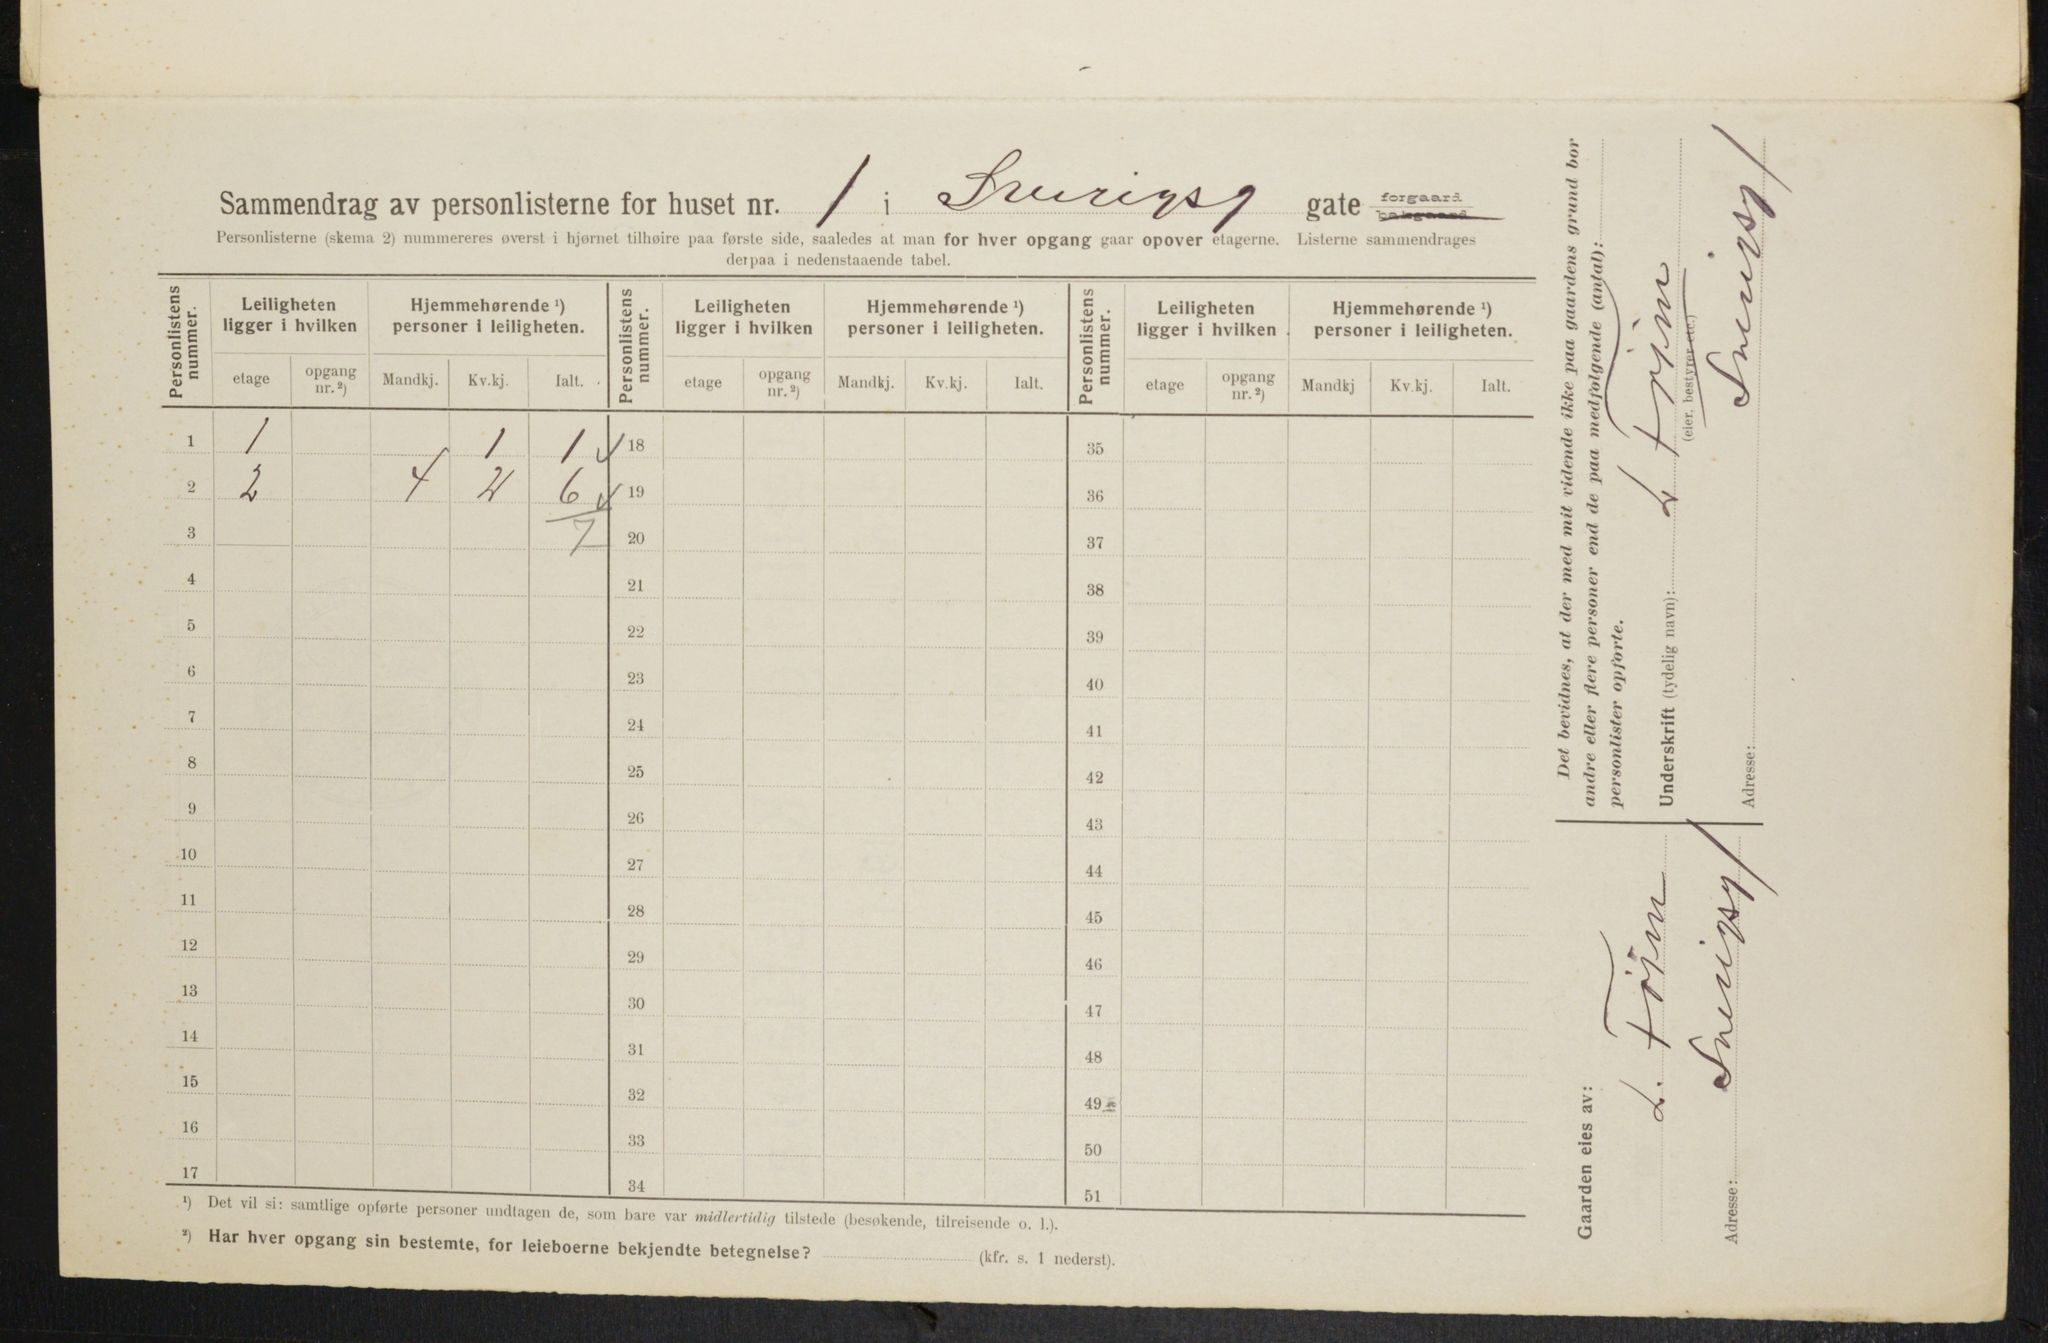 Sammendrag av personlisterne for huset nr. 1 i Sverigsg gate forgaard bakgaard
Personlisterne (skema 2) nummereres øverst i hjørnet tilhøire paa første side, saaledes at man for hver opgang gaar opover etagerne. Listerne sammendrages
derpaa i nedenstaaende tabel.
Personlistens nummer. Leiligheten ligger i hvilken Hjemmehørende ¹) personer i leiligheten. Personlistens nummer. Leiligheten ligger i hvilken Hjemmehørende ¹) personer i leiligheten. Personlistens nummer. Leiligheten ligger i hvilken Hjemmehørende ¹) personer i leiligheten.
etage opgang nr. ²) Mandkj. Kv.kj. Ialt. etage opgang nr. ²) Mandkj. Kv.kj. Ialt. etage opgang nr. ²) Mandkj Kv.kj. Ialt.
1 1 1 1 18 35
2 2 4 2 6 19 36
3 7 20 37
4 21 38
5 22 39
6 23 40
7 24 41
8 25 42
9 26 43
10 27 44
11 28 45
12 29 46
13 30 47
14 31 48
15 32 49
16 33 50
17 34 51
¹) Det vil si: samtlige opførte personer undtagen de, som bare var midlertidig tilstede (besøkende, tilreisende o. l.).
²) Har hver opgang sin bestemte, for leieboerne bekjendte betegnelse? (kfr. s. 1 nederst).
Det bevidnes, at der med mit vidende ikke paa gaardens grund bor
andre eller flere personer end de paa medfølgende (antal):
personlister opførte.
Underskrift (tydelig navn):
(eier, bestyrer etc.)
Adresse: Sverigsg 1
Gaarden eies av:
Adresse: Sverigsg 1